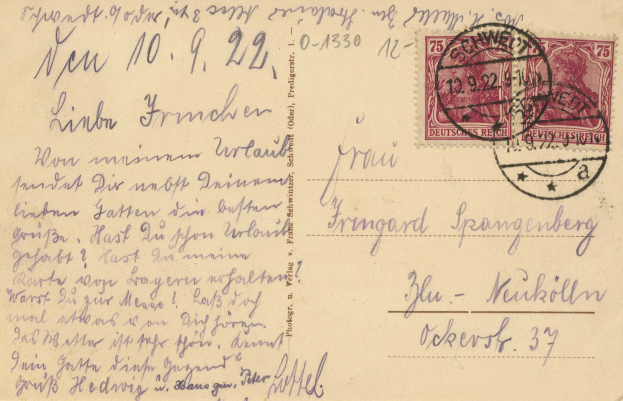 Schwedt a/Oder,
den 10. 9. 22.
Liebe Irmchen
Von meinem Urlaub
sendet Dir nebst Deinem
lieben Gatten die besten
Grüße. Hast Du schon Urlaub
gehabt? Hast Du meine
Karte von Bayern erhalten?
Warst Du zur Messe! Laß doch
mal etwas von Dir hören.
Das Wetter ist sehr schön. Kennt
Dein Gatte diese Gegend?
Gruß Hedwig u. Hans gen. Peter
O-1330
12-
Photogr. u. Verlag v. Franz Schwintzer, Schwedt (Oder), Predigerstr. 1.
75
75
DEUTSCHES REICH
DEUTSCHES REICH
SCHWEDT
10.9.22.9-10V.
SCHWEDT
10.9.22.9-10V
a
Frau
Irmgard Spangenberg
Bln.- Neukölln
Ockerstr. 37